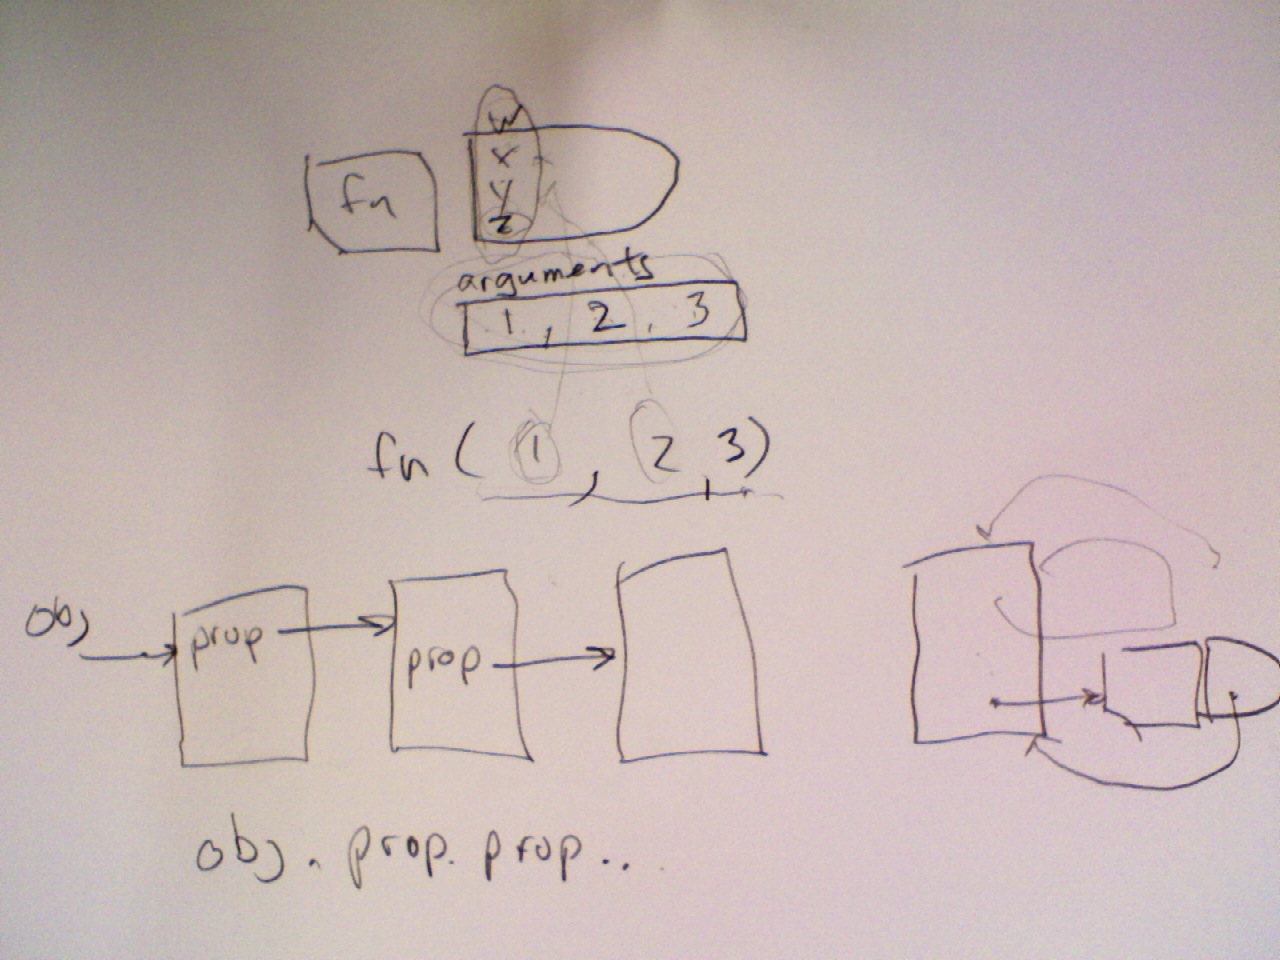 w
x
fn
y
z
arguments
1, 2, 3
fn ( 1, 2, 3)
obj
prop
prop
obj. prop. prop..